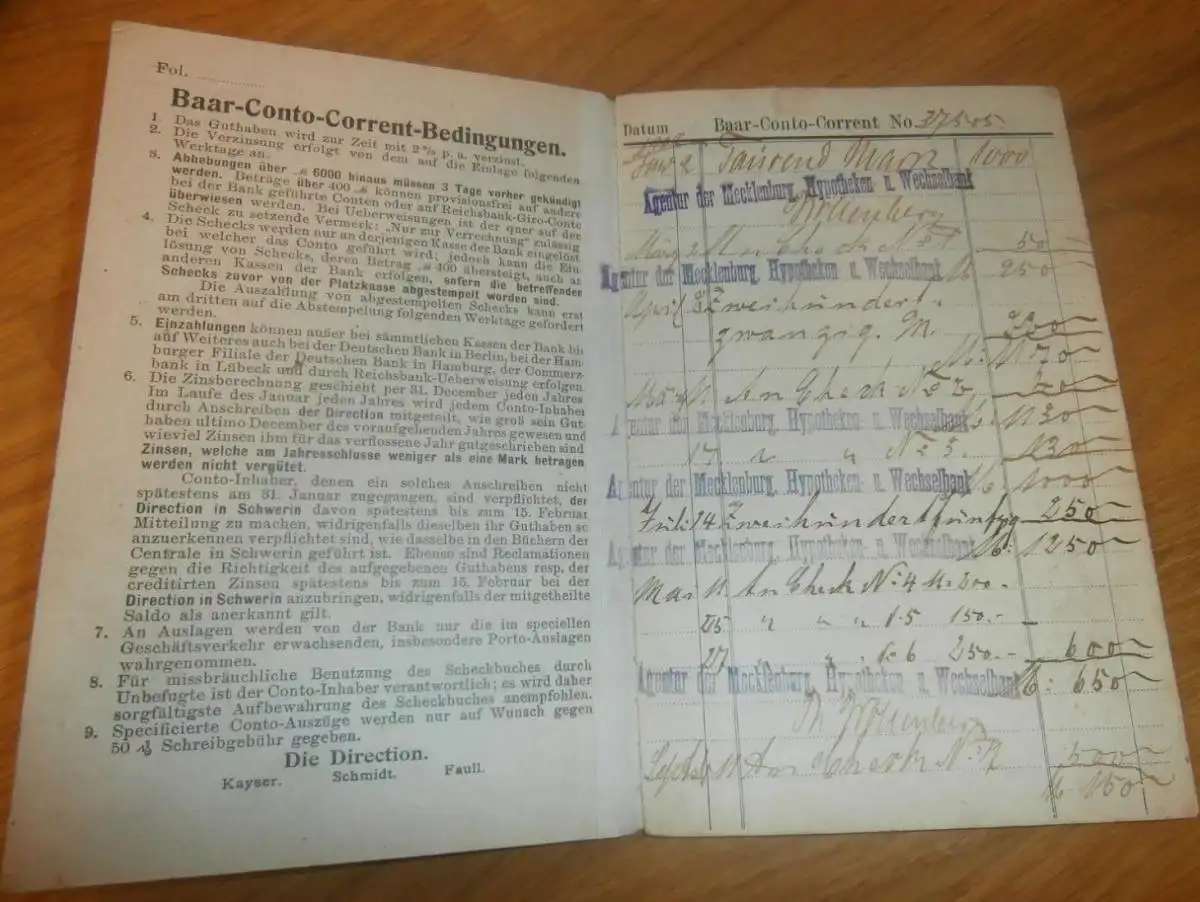 Fol.
Baar-Conto-Corrent-Bedingungen.
1. Das Guthaben wird zur Zeit mit 2 % p. a. verzinst.
2. Die Verzinsung erfolgt von dem auf die Einlage folgenden
Werktage an.
3. Abhebungen über ℳ 6000 hinaus müssen 3 Tage vorher gekündigt
werden. Beträge über 400 ℳ können provisionsfrei auf andere
bei der Bank geführte Conten oder auf Reichsbank-Giro-Conto
überwiesen werden. Bei Ueberweisungen ist der quer auf der
Scheck zu setzende Vermerk: „Nur zur Verrechnung" zulässig
4. Die Schecks werden nur an derjenigen Kasse der Bank eingelöst
bei welcher das Conto geführt wird; jedoch kann die Ein
lösung von Schecks, deren Betrag ℳ 400 übersteigt, auch an
anderen Kassen der Bank erfolgen, sofern die betreffender
Schecks zuvor von der Platzkasse abgestempelt worden sind.
Die Auszahlung von abgestempelten Schecks kann erst
am dritten auf die Abstempelung folgenden Werktage gefordert
werden.
5. Einzahlungen können außer bei sämtlichen Kassen der Bank bis
auf Weiteres auch bei der Deutschen Bank in Berlin, bei der Ham
burger Filiale der Deutschen Bank in Hamburg, der Commerz
bank in Lübeck und durch Reichsbank-Ueberweisung erfolgen
6. Die Zinsberechnung geschieht per 31. December jeden Jahres
Im Laufe des Januar jeden Jahres wird jedem Conto-Inhaber
durch Anschreiben der Direction mitgeteilt, wie groß sein Gut
haben ultimo December des voraufgehenden Jahres gewesen und
wieviel Zinsen ihm für das verflossene Jahr gutgeschrieben sind
Zinsen, welche am Jahresschlusse weniger als eine Mark betragen
werden nicht vergütet.
Conto-Inhaber, denen ein solches Anschreiben nicht
spätestens am 31. Januar zugegangen, sind verpflichtet, der
Direction in Schwerin davon spätestens bis zum 15. Februar
Mitteilung zu machen, widrigenfalls dieselben ihr Guthaben so
anzuerkennen verpflichtet sind, wie dasselbe in den Büchern der
Centrale in Schwerin geführt ist. Ebenso sind Reclamationen
gegen die Richtigkeit des aufgegebenen Guthabens resp. der
creditirten Zinsen spätestens bis zum 15. Februar bei der
Direction in Schwerin anzubringen, widrigenfalls der mitgetheilte
Saldo als anerkannt gilt.
7. An Auslagen werden von der Bank nur die im speciellen
Geschäftsverkehr erwachsenden, insbesondere Porto-Auslagen
wahrgenommen.
8. Für missbräuchliche Benutzung des Scheckbuches durch
Unbefugte ist der Conto-Inhaber verantwortlich; es wird daher
sorgfältigste Aufbewahrung des Scheckbuches anempfohlen.
9. Specificierte Conto-Auszüge werden nur auf Wunsch gegen
50 ₰ Schreibgebühr gegeben.
Die Direction.
Kayser. Schmidt. Faull.
Datum Baar-Conto-Corrent No.
2 Tausend Mark 1000
Agentur der Mecklenburg. Hypotheken- u. Wechselbank
März 2 An Check No 1 50
Agentur der Mecklenburg. Hypotheken- u. Wechselbank 250
April Zweihundert
zwanzig M.
März 11 An Check No 2
Agentur der Mecklenburg. Hypotheken- u. Wechselbank 1130
17 " " No 3. 130
Agentur der Mecklenburg. Hypotheken- u. Wechselbank 1000
Juli 14 Zweihundertfünfzig 250
Agentur der Mecklenburg. Hypotheken- u. Wechselbank 1250
Mai 11 An Check No 4 M: 200.-
25 " " " 5 150.-
27 6 250.- 600
Agentur der Mecklenburg. Hypotheken- u. Wechselbank 650
Septbr 11 An Check No 7 500
150